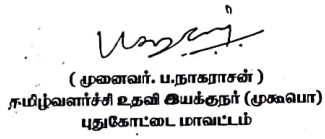 ( முனைவர். ப.நாகராசன் )
தமிழ்வளர்ச்சி உதவி இயக்குநர் (முகூபொ)
புதுகோட்டை மாவட்டம்